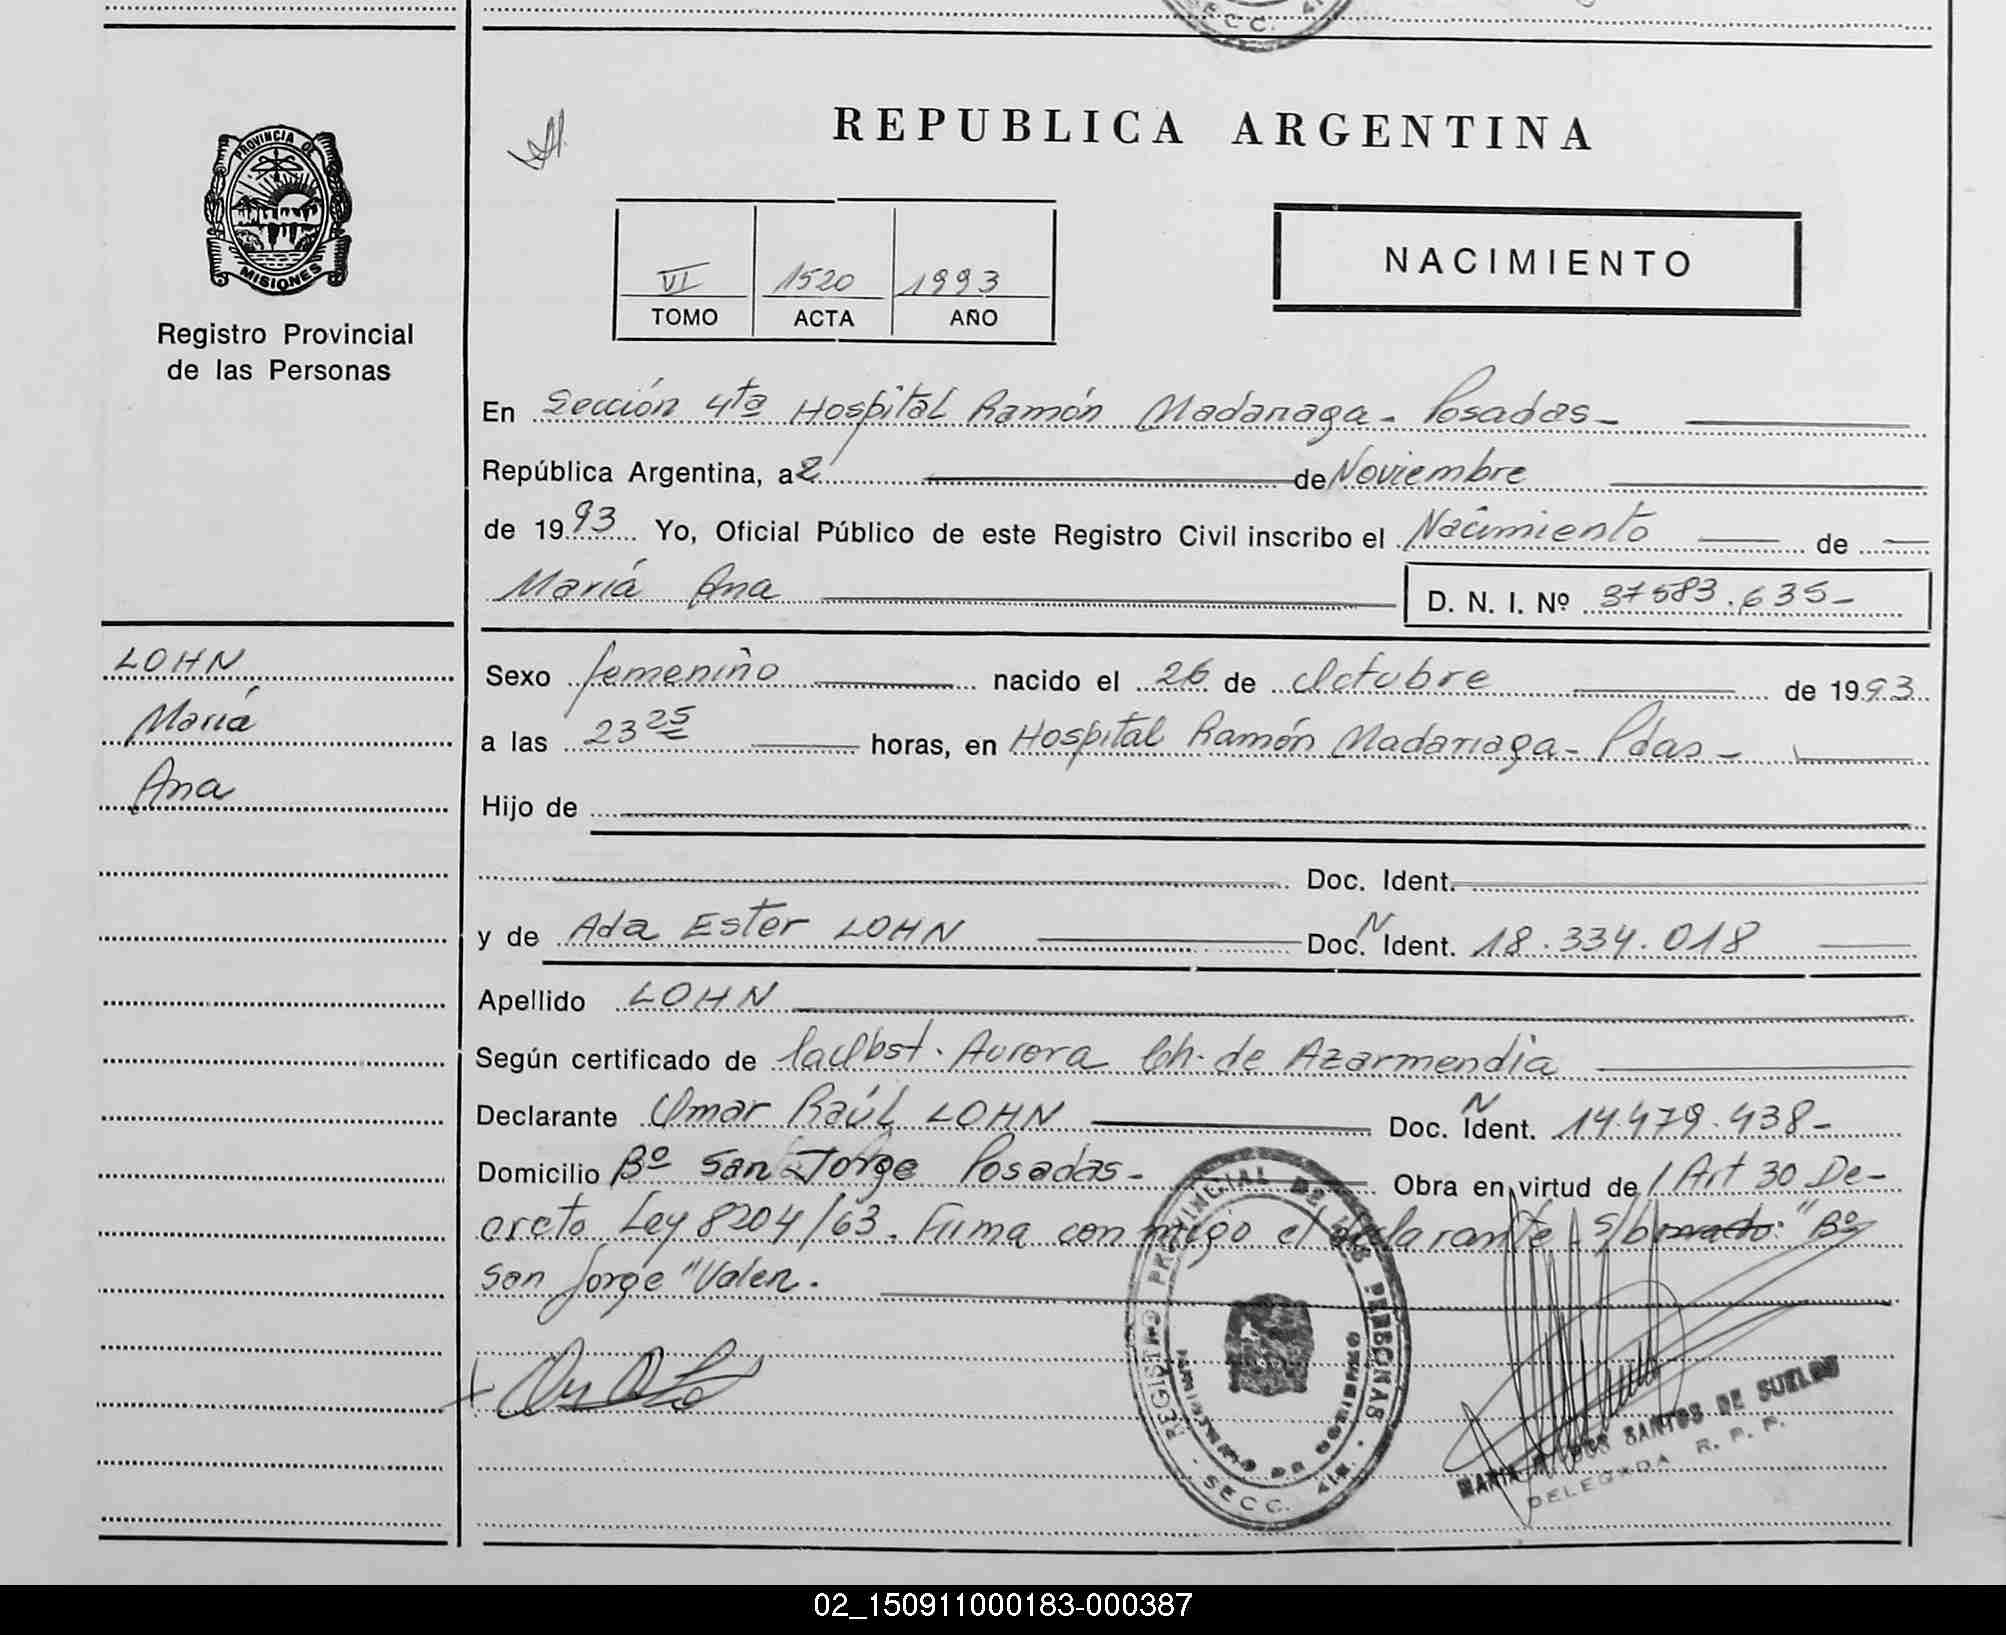 SECC. 4ta
REPUBLICA ARGENTINA
PROVINCIA DE
MISIONES
Registro Provincial
de las Personas
VI 1520 1993
TOMO ACTA AÑO
NACIMIENTO
En Sección 4ta Hospital Ramón Madariaga - Posadas -
República Argentina, a 2 de Noviembre
de 1993 Yo, Oficial Público de este Registro Civil inscribo el Nacimiento de
María Ana D. N. I. Nº 37583.635-
LOHN
María
Ana
Sexo femenino nacido el 26 de Octubre de 1993
a las 23 25 horas, en Hospital Ramón Madariaga - Pdas -
Hijo de
Doc. Ident.
y de Ada Ester LOHN Doc. N Ident. 18.334.018
Apellido LOHN
Según certificado de la Obst. Aurora Ch. de Azarmendia
Declarante Omar Raúl LOHN Doc. N Ident. 14.479.438-
Domicilio Bº San Jorge Posadas - Obra en virtud de / Art 30 De-
creto Ley 8204/63. Firma conmigo el declarante - S/borrado: "Bº
San Jorge" Valen.
REGISTRO PROVINCIAL DE LAS PERSONAS
SECC. 4ta
SANTOS DE SUELDO
DELEGADA R. P. P.
02_150911000183-000387